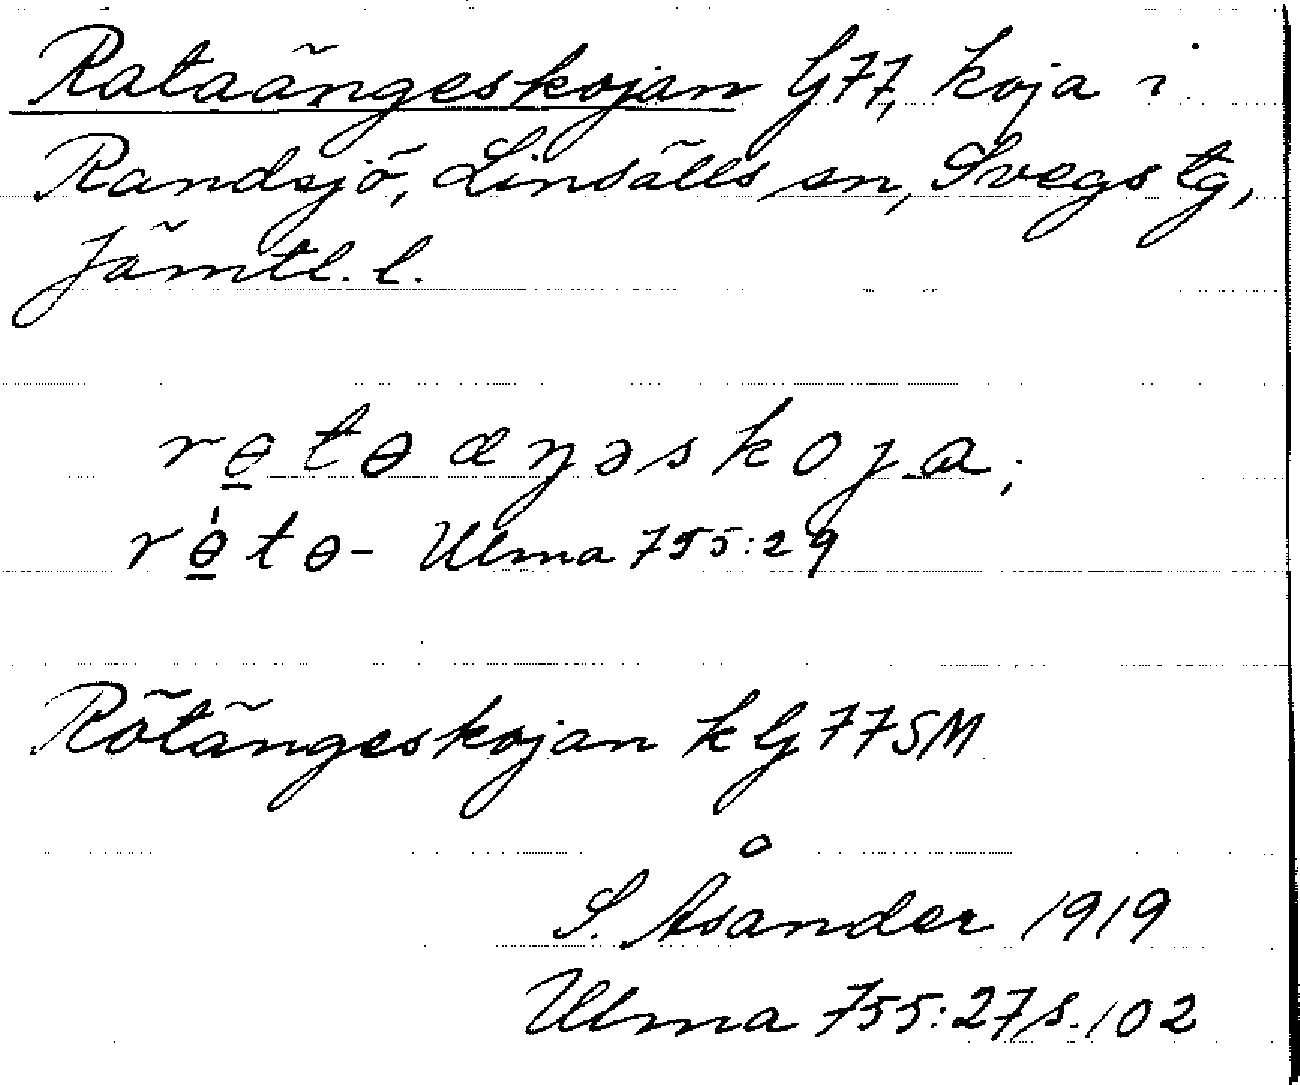 Rataängeskojan G77, koja i
Randsjö, Linsälls sn, Svegs tg,
Jämtl. l.
rɵ̲tɵæŋəskoja;
rɵ̲̍tɵ- Ulma 755:29
Rötängeskojan k G77SM
S. Åsander 1919
Ulma 755:27 s. 102